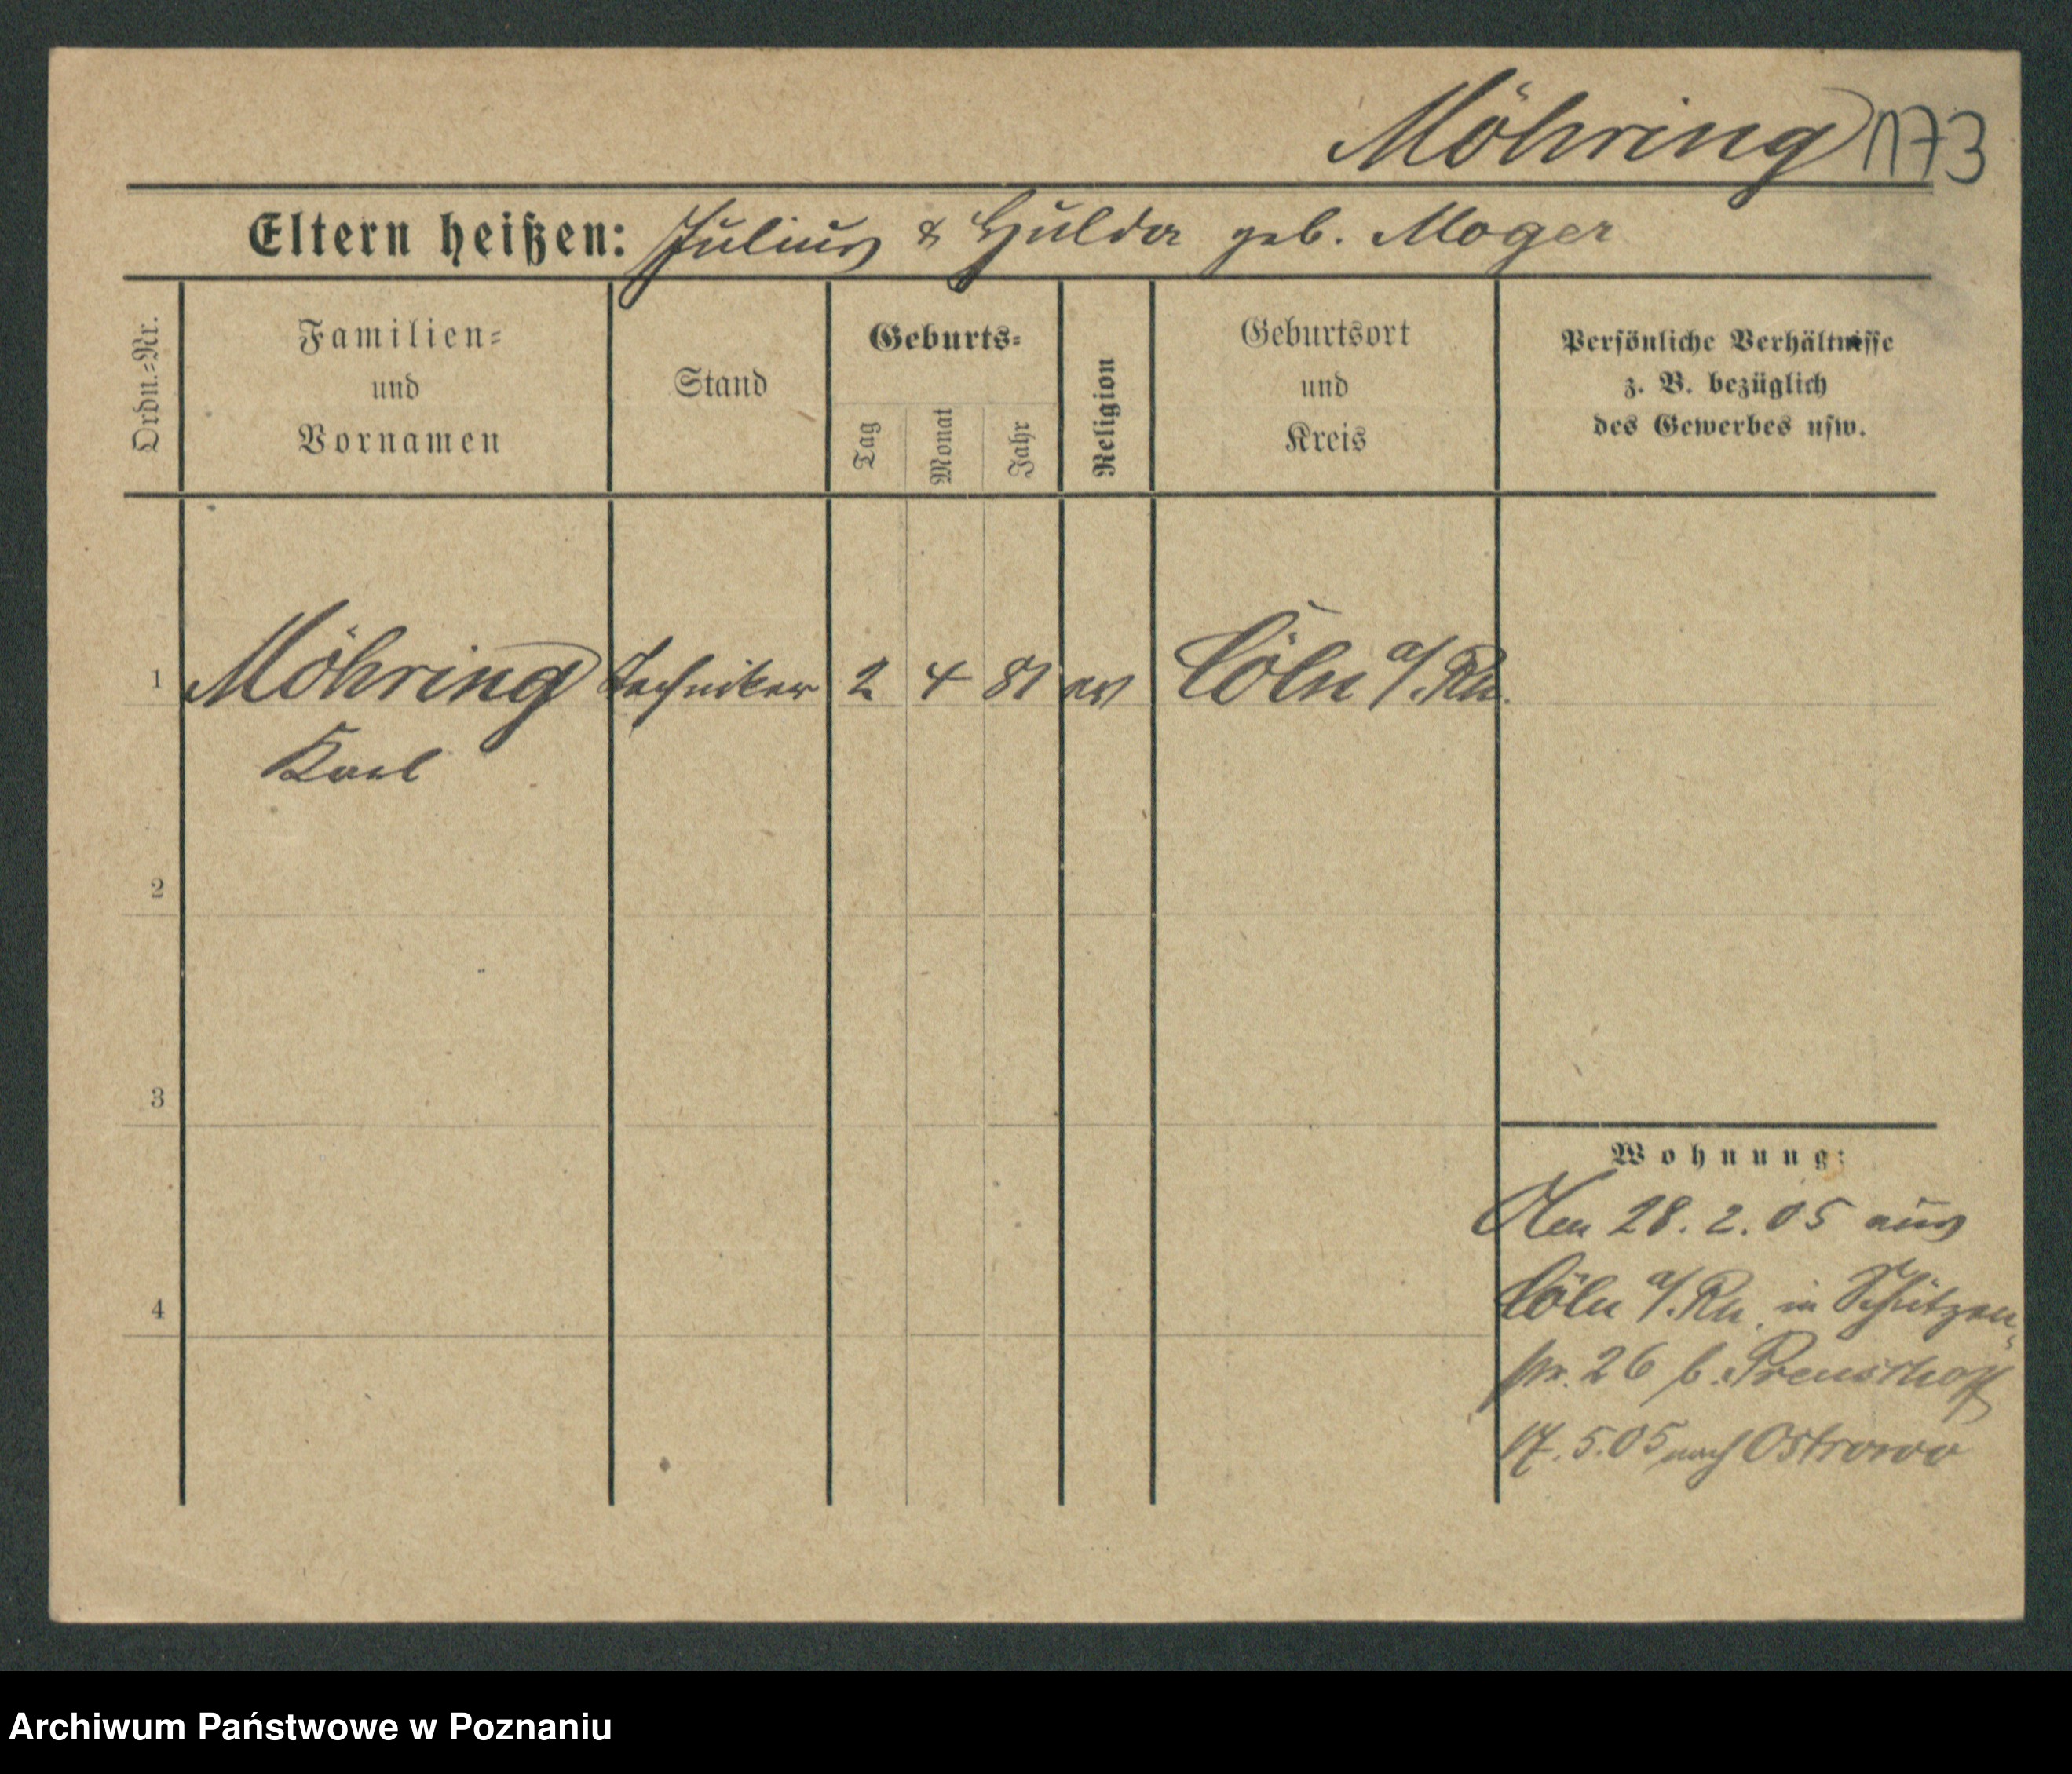 Möhring 173
Eltern heißen: Julius & Hulda geb. Moger
Ordn.-Nr.
Familien-
und
Vornamen
Stand
Geburts-
Tag
Monat
Jahr
Religion
Geburtsort
und
Kreis
Persönliche Verhältnisse
z. B. bezüglich
des Gewerbes usw.
1 Möhring Techniker 2 4 81 ev Cöln a/. Rh.
Karl
2
3
4
Wohnung:
Den 28. 2. 05 aus
Cöln a/. Rh. in Schützen-
str. 26 b.
17. 5. 05 nach Ostrowo
Archiwum Państwowe w Poznaniu